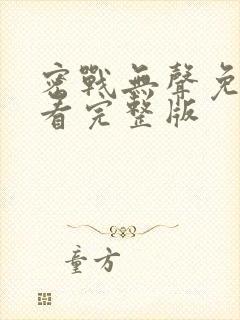 密戰無聲免
看完整版
童方